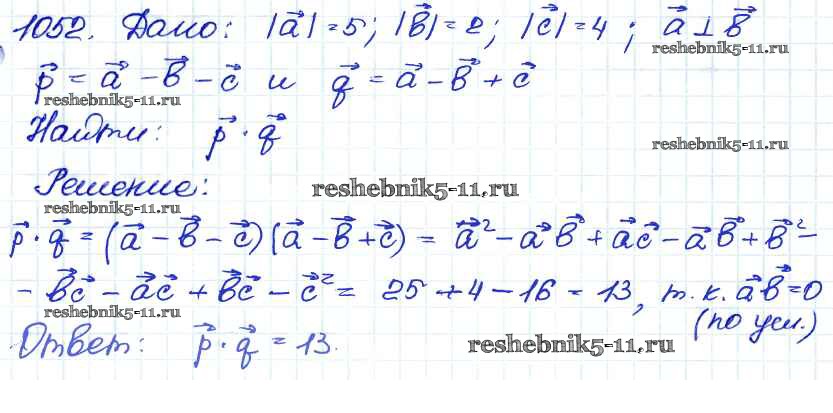 1052. Дано: |a⃗|=5; |b⃗|=2; |c⃗|=4; a⃗ ⊥ b⃗
reshebnik5-11.ru
p⃗ = a⃗ - b⃗ - c⃗ и q⃗ = a⃗ - b⃗ + c⃗
reshebnik5-11.ru
Найти: p⃗ · q⃗
reshebnik5-11.ru
Решение:
reshebnik5-11.ru
reshebnik5-11.ru
p⃗ · q⃗ = (a⃗ - b⃗ - c⃗)(a⃗ - b⃗ + c⃗) = a⃗² - a⃗b⃗ + a⃗c⃗ - a⃗b⃗ + b⃗² -
- b⃗c⃗ - a⃗c⃗ + b⃗c⃗ - c⃗² = 25 + 4 - 16 = 13, т.к. a⃗b⃗ = 0
reshebnik5-11.ru
(по усл.)
Ответ: p⃗ · q⃗ = 13.
reshebnik5-11.ru